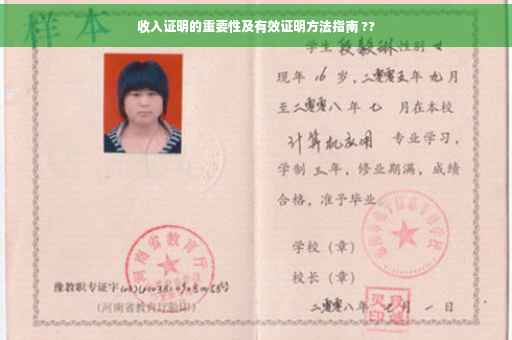 收入证明的重要性及有效证明方法指南 ??
样本
学生段毅琳性别 女
现年 16 岁，二零零五年 九 月
至二零零八 年 七 月在本校
计算机应用 专业学习，
学制 三 年，修业期满，成绩
合格，准予毕业
学校（章）
校长（章）
二零零八年 月 一 日
河南省教育厅
豫教职专证字
(河南省教育厅验印)